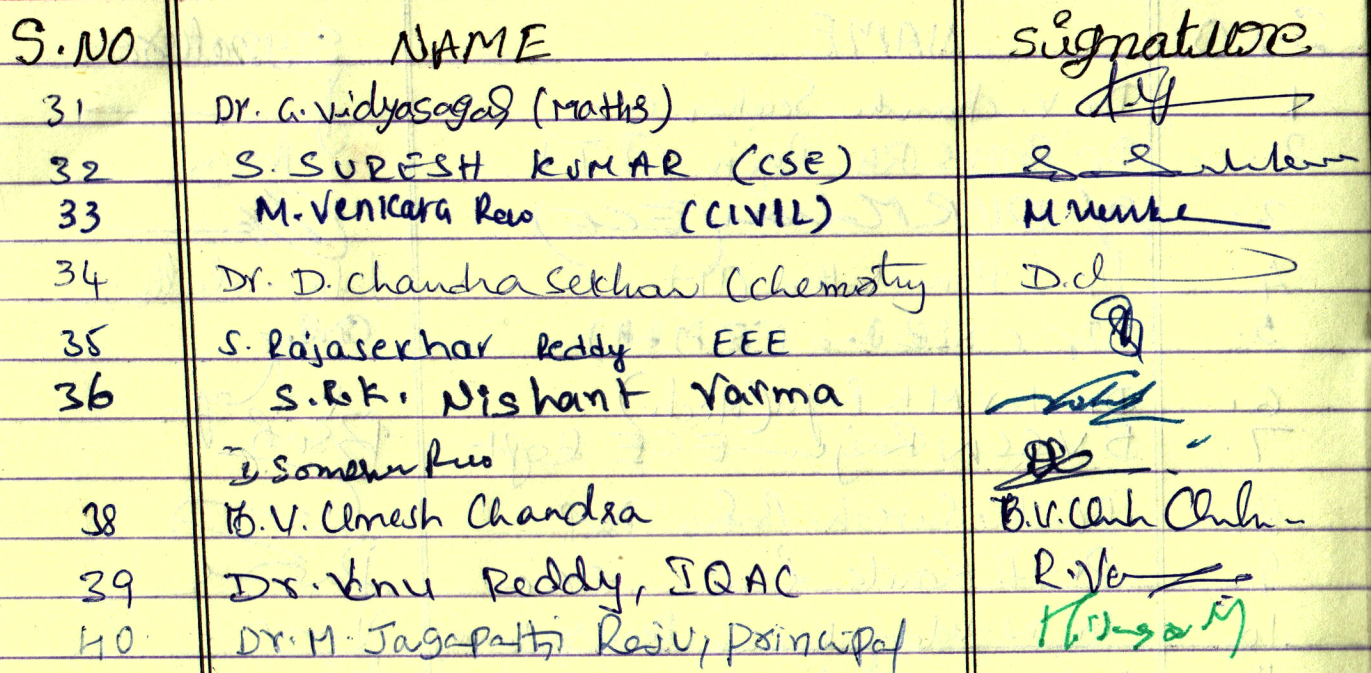 S.NO NAME Signature
31 Dr. G. Vidyasagar (Maths)
32 S. SURESH KUMAR (CSE)
33 M. Venkata Rao (CIVIL) M Venka
34 Dr. D. Chandra Sekhar (Chemistry D. Ch
35 S. Rajasekhar Reddy EEE
36 S.R.K. Nishant Varma
Someswar Rao
38 B.V. Umesh Chandra B.V.
39 Dr. Venu Reddy, IQAC R. Ve
40 Dr. M. Jagapathi Raju, principal